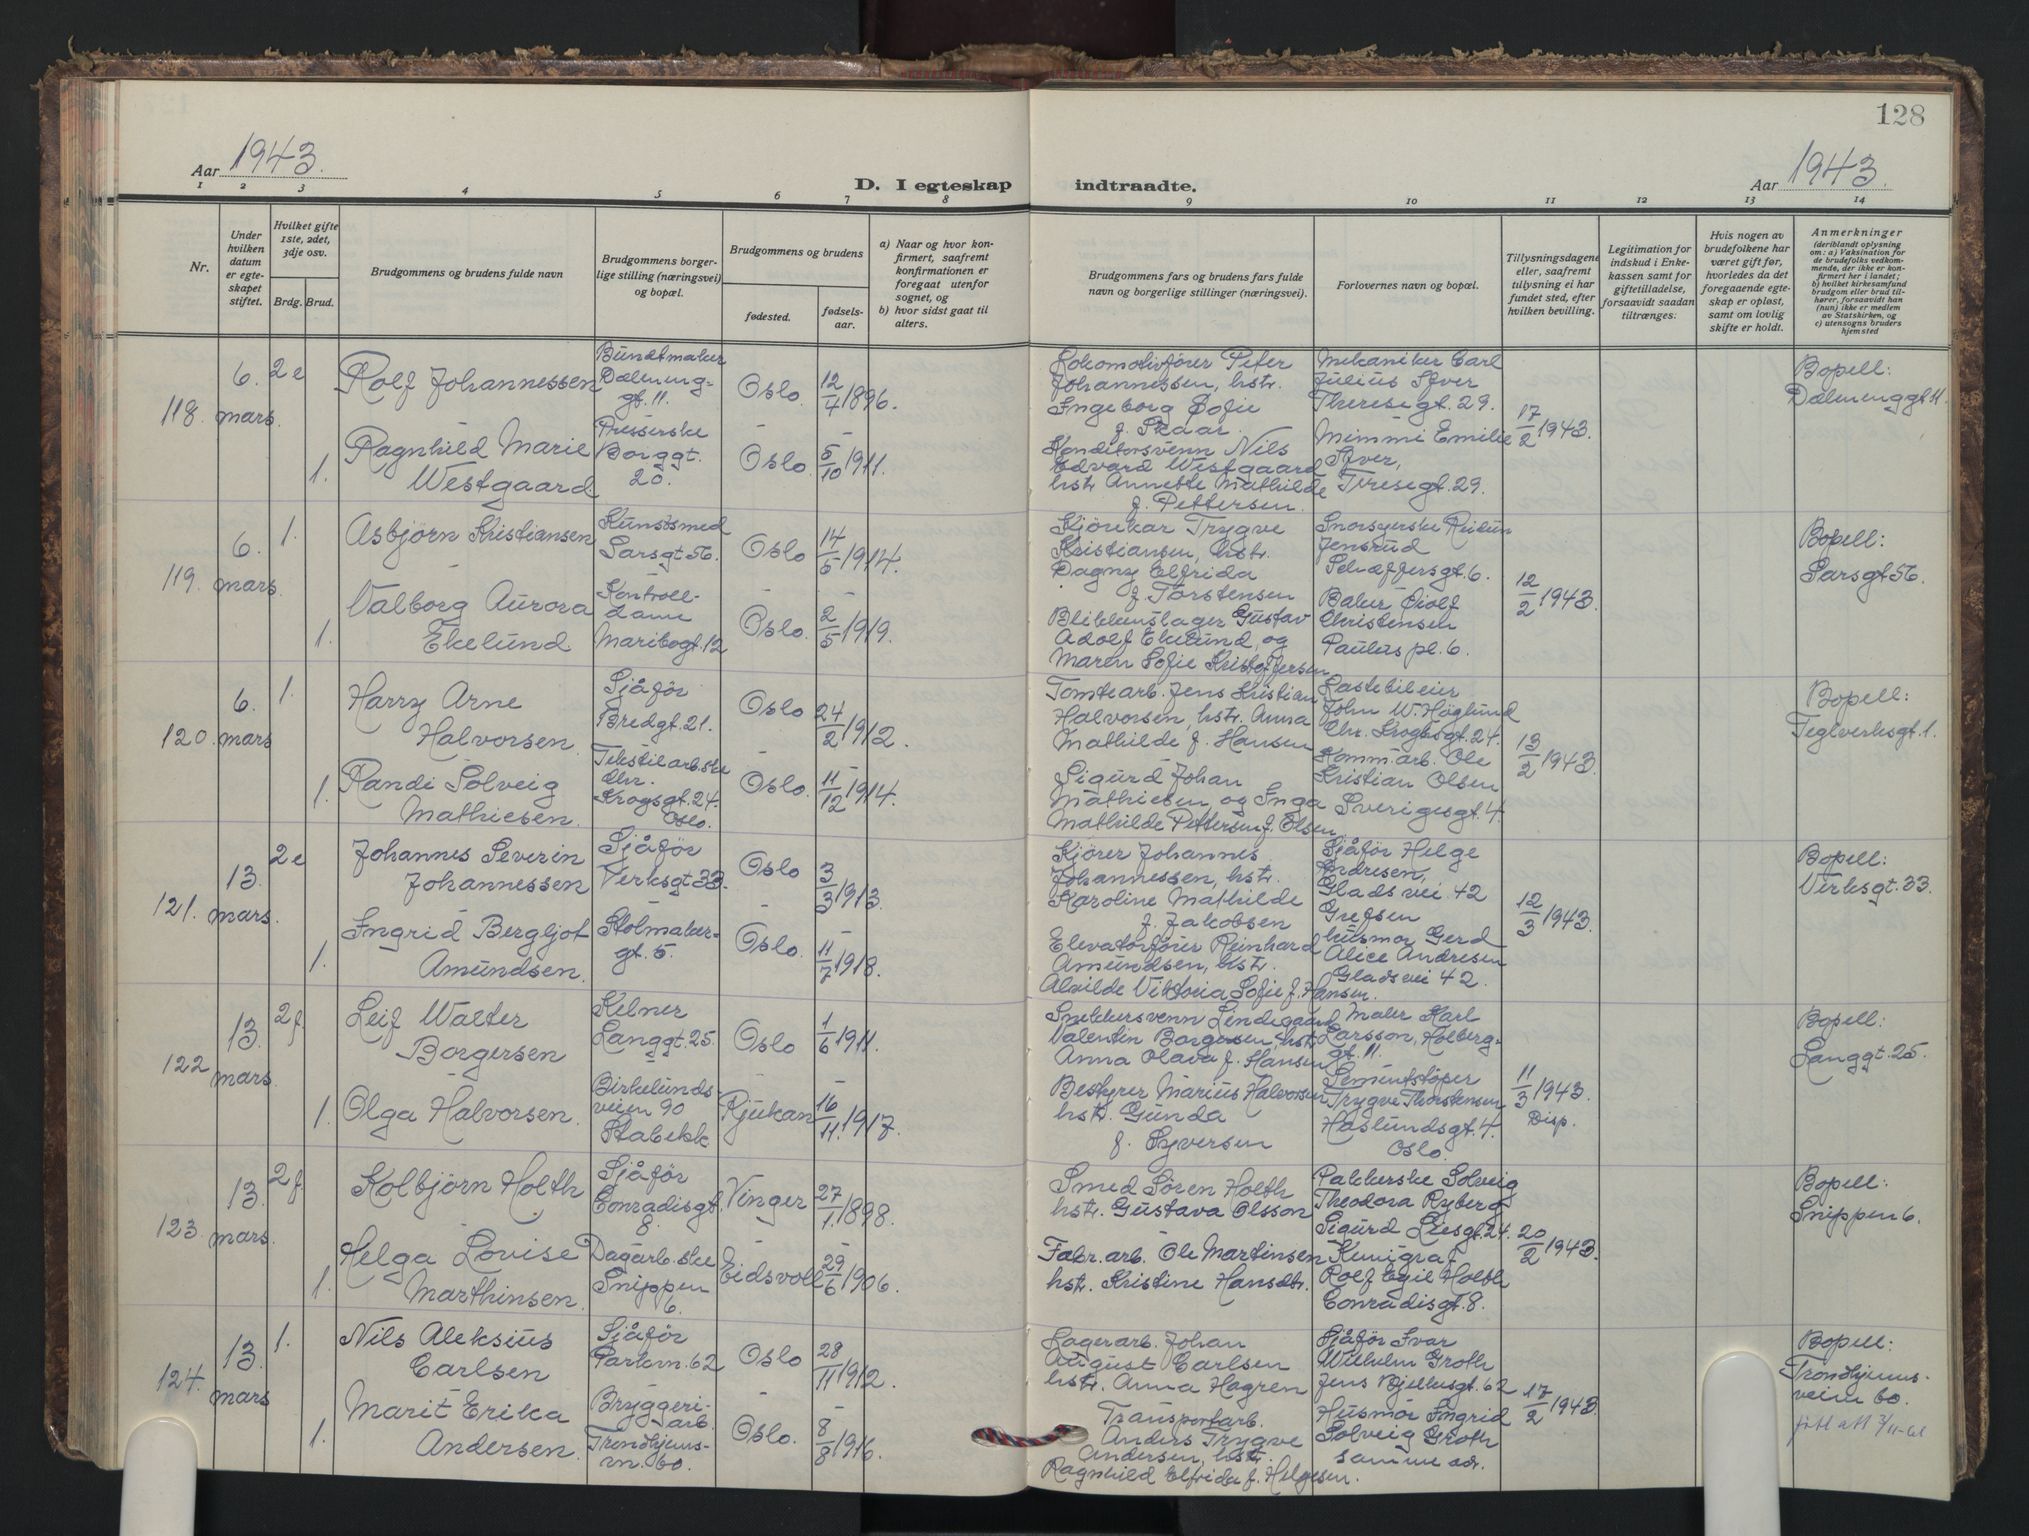 128
Aar 1943.
D. I egteskap indtraadte.
Aar 1943.
1 2 3 4 5 6 7 8 9 10 11 12 13 14
Nr.
Under hvilken datum er egteskapet stiftet.
Hvilket gifte 1ste, 2det, 3dje osv.
Brdg. Brud.
Brudgommens og brudens fulde navn
Brudgommens borgerlige stilling (næringsvei) og bopæl.
Brudgommens og brudens
fødested.
fødselsaar.
a) Naar og hvor konfirmert, saafremt konfirmationen er foregaat utenfor sognet, og
b) hvor sidst gaat til alters.
Brudgommens fars og brudens fars fulde navn og borgerlige stillinger (næringsvei).
Forlovernes navn og bopæl.
Tillysningsdagene eller, saafremt tillysning ei har fundet sted, efter hvilken bevilling.
Legitimation for indskud i Enkekassen samt for giftetilladelse, forsaavidt saadan tiltrænges.
Hvis nogen av brudefolkene har været gift før, hvorledes da det foregaaende egteskap er opløst, samt om lovlig skifte er holdt.
Anmerkninger
(deriblandt oplysning om: a) Vaksination for de brudefolks vedkommende, der ikke er konfirmert her i landet; b) hvilket kirkesamfund brudgom eller brud tilhører, forsaavidt han (hun) ikke er medlem av Statskirken, og c) utensogns bruders hjemsted
118. 6. mars
2e
Rolf Johannessen
Buntmaker
Dælenenggt. 11.
Oslo. 12/4 1896.
1.
Ragnhild Marie
Westgaard
Presserske
Borggt.
20.
Oslo. 5/10 1911.
Lokomotivfører Peter
Johannessen, hstr.
Ingeborg Sofie
f. Skaar.
Konditorsvenn Nils
Edvard Westgaard
hstr. Annette Mathilde
f. Pettersen.
Mekaniker Carl
Julius Siver
Theresegt. 29.
Mimmi Emilie
Siver,
Tresegt. 29.
17/2 1943.
Bopell:
Dælenenggt 11.
119. 6. mars
1.
Asbjørn Kristiansen
Kunstsmed
Sarsgt 56.
Oslo 14/5 1914.
1.
Valborg Aurora
Ekelund
Kontroll-
dame
Maribogt. 12
Oslo. 2/5 1919.
Kjørekar Trygve
Kristiansen, hstr.
Dagny Elfrida
f. Torstensen
Blikkenslager Gustav
Adolf Ekelund, og
Maren Sofie Kristoffersen
Snorsyerske Reidun
Jensrud
Schæffersgt. 6.
Baker Øiolf
Christensen
Paulus pl. 6.
12/2 1943.
Bopell:
Sarsgt 56.
120. 6. mars
1.
Harry Arne
Halvorsen.
Sjåfør
Bredgt. 21.
Oslo 24/2 1912.
1.
Randi Solveig
Mathiesen.
Tekstilarb.ske
Chr.
Krogsgt. 24.
Oslo.
Oslo. 11/12 1914.
Tomtearb. Jens Kristian
Halvorsen, hstr. Anna
Mathilde f. Hansen
Sigurd Johan
Mathiesen, og Inga
Mathilde Pettersen f. Olsen
Lastebileier
John W. Høglund
Chr. Krogsgt. 24.
Komm.arb. Ole
Kristian Olsen
Sverigesgt. 4.
13/2 1943.
Bopell:
Teglverksgt. 1.
121. 13. mars.
2e
Johannes Severin
Johannessen
Sjåfør
Verksgt 33.
Oslo 3/3 1913.
1.
Ingrid Bergljot
Amundsen.
Stolmaker-
gt. 5.
Oslo. 11/7 1918.
Kjører Johannes
Johannessen, hstr.
Karoline Mathilde
f. Jakobsen
Elevatorfører Reinhard
Amundsen, hstr.
Alvilde Viktoria Sofie f. Hansen.
Sjåfør Helge
Andresen,
Glads vei 42
Grefsen
husmor Gerd
Alice Andresen
Gladsvei 42.
12/3 1943.
Bopell:
Verksgt. 33.
122 13. mars
2f.
Leif Walter
Borgersen
Kelner
Langgt. 25.
Oslo 1/6 1911.
1.
Olga Halvorsen.
Birkelunds-
veien 90
Stabekk
Rjukan 16/11. 1917.
Snekkersvenn Lindegaard
Valentin Borgersen, hstr.
Anna Olava f. Hansen
Bestyrer Marius Halvorsen
hstr. Gunda
f. Syversen
Maler Karl
Larsson, Holberg-
gt. 11.
Sementstøper
Trygve Thorstensen
Haslundsgt. 4.
Oslo.
11/3 1943.
Disp.
Bopell:
Langgt. 25.
123. 13. mars.
2f.
Kolbjørn Holth
Sjåfør
Conradisgt.
8.
Vinger 27/1. 1898.
1.
Helga Lovise
Marthinsen.
Dagarb.ske
Snippen
6.
Eidsvoll 29/6 1906.
Smed Søren Holth
hstr. Gustava Olsson
Fabr.arb. Ole Martinsen
hstr. Kristine Hansdtr.
Pakkerske Solveig
Theodora Ryberg
Sigurd Liesgt. 24.
Kemigraf
Rolf Egil Holth
Conradisgt. 8.
20/2 1943.
Bopell:
Snippen 6.
124. 13. mars
1.
Nils Aleksius
Carlsen
Sjåfør
Parkvn. 62
Oslo 28/11 1912.
1.
Marit Erika
Andersen.
Bryggeri-
arb.
Trondhjems-
vn. 60.
Oslo. 8/8 1916.
Lagerarb. Johan
August Carlsen
hstr. Anna Hagren
Transportarb.
Anders Trygve
Andersen, hstr.
Ragnhild Elfrida f. Helgesen.
Sjåfør Ivar
Wilhelm Groth
Jens Bjelkesgt. 62
Husmor Ingrid
Solveig Groth
samme adr.
17/2 1943.
Bopell:
Trondhjems-
veien 60.